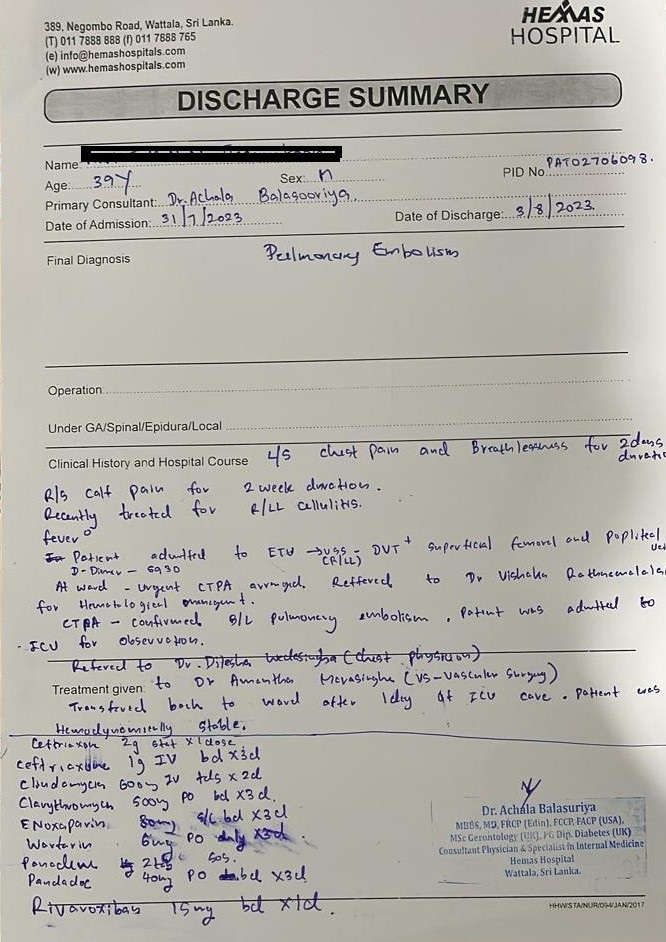 389, Negombo Road, Wattala, Sri Lanka.
(T) 011 7888 888 (f) 011 7888 765
(e) info@hemashospitals.com
(w) www.hemashospitals.com
HEMAS
HOSPITAL
DISCHARGE SUMMARY
Name:
PID No. PAT02706098.
Age: 39Y Sex: M
Primary Consultant: Dr. Achala Balasooriya.
Date of Admission: 31/7/2023 Date of Discharge: 3/8/2023.
Final Diagnosis Pulmonary Embolism
Operation:
Under GA/Spinal/Epidura/Local
Clinical History and Hospital Course L/S chest pain and Breathlessness for 2days duration
R/S calf pain for 2 week duration.
Recently treated for R/LL cellulitis.
fever°
Patient admitted to ETU → USS - DVT + superficial femoral and popliteal
(R/LL)
D-Dimer - 6930
At ward - urgent CTPA arranged. Reffered to Dr Vishaka
for Hematological management.
CTPA - confirmed B/L pulmonary embolism. Patient was admitted to
ICU for observation.
Refered to Dr. Dilesha Wadasingha (chest physician)
Treatment given: to Dr Amantha Herasinghe (VS-Vascular Surgery)
Transfered back to ward after 1day of ICU care. Patient was
Hemodynamically stable.
Ceftriaxon 2g stat x1dose
Ceftriaxone 1g IV bd x3d
Clindamycin 600mg IV tds x 2d
Clarythromycin 500mg PO bd x3d.
ENoxaparin 80mg S/C bd x3d
Warfarin 6mg PO daily x3d
Panadene 2tab SOS.
Pandadoc 40mg PO bd x3d
Rivaroxiban 15mg bd x1d.
Dr. Achala Balasuriya
MBBS, MD, FRCP (Edin), FCCP, FACP (USA),
MSc Gerontology (UK), PG Dip. Diabetes (UK)
Consultant Physician & Specialist in Internal Medicine
Hemas Hospital
Wattala, Sri Lanka.
HHW/STA/NUR/094/JAN/2017